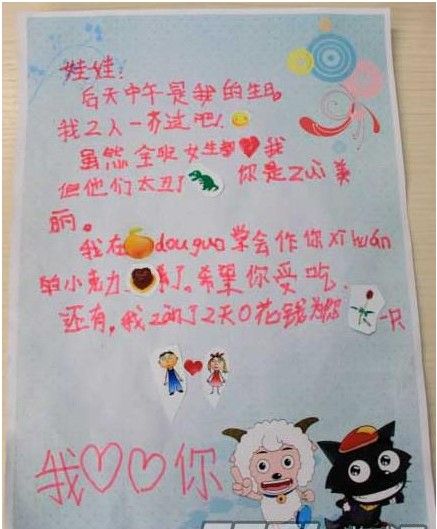 娃娃：
后天中午是我的生日。
我2人一齐过吧！
虽然全班女生都❤我
但他们太丑了 你是Zui美
丽。
我在douguo学会作你xi huan
的小老力 了。希望你受吃，
还有，我 了2天0花钱为你 一只
我♡♡你